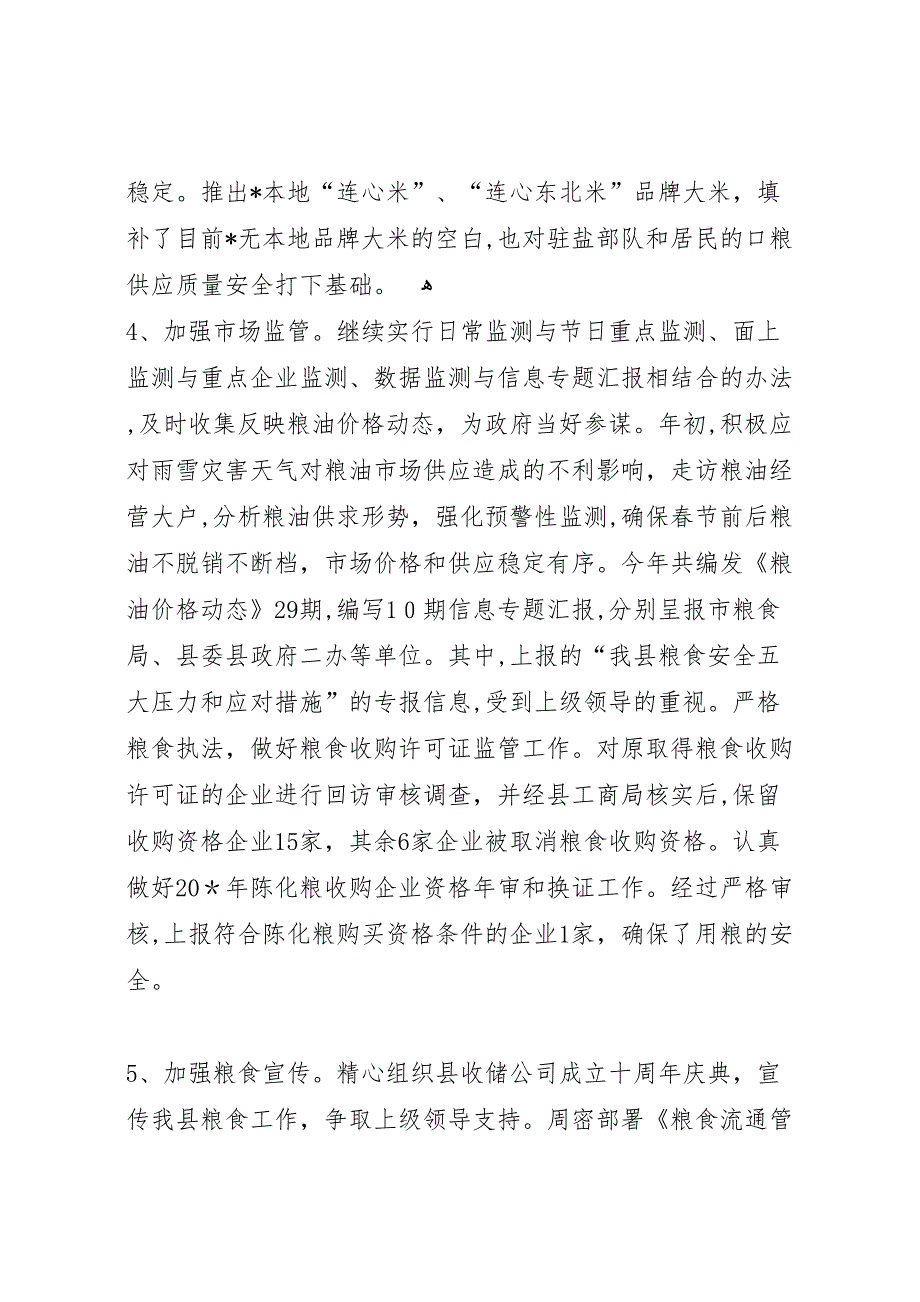 稳定。推出*本地“连心米”、“连心东北米”品牌大米，填
补了目前*无本地品牌大米的空白,也对驻盐部队和居民的口粮
供应质量安全打下基础。 ﻫ
4、加强市场监管。继续实行日常监测与节日重点监测、面上
监测与重点企业监测、数据监测与信息专题汇报相结合的办法
,及时收集反映粮油价格动态，为政府当好参谋。年初,积极应
对雨雪灾害天气对粮油市场供应造成的不利影响，走访粮油经
营大户,分析粮油供求形势，强化预警性监测,确保春节前后粮
油不脱销不断档，市场价格和供应稳定有序。今年共编发《粮
油价格动态》29期,编写10期信息专题汇报,分别呈报市粮食
局、县委县政府二办等单位。其中,上报的“我县粮食安全五
大压力和应对措施”的专报信息,受到上级领导的重视。严格
粮食执法，做好粮食收购许可证监管工作。对原取得粮食收购
许可证的企业进行回访审核调查，并经县工商局核实后,保留
收购资格企业15家，其余6家企业被取消粮食收购资格。认真
做好20＊年陈化粮收购企业资格年审和换证工作。经过严格审
核,上报符合陈化粮购买资格条件的企业1家，确保了用粮的安
全。
5、加强粮食宣传。精心组织县收储公司成立十周年庆典，宣
传我县粮食工作，争取上级领导支持。周密部署《粮食流通管